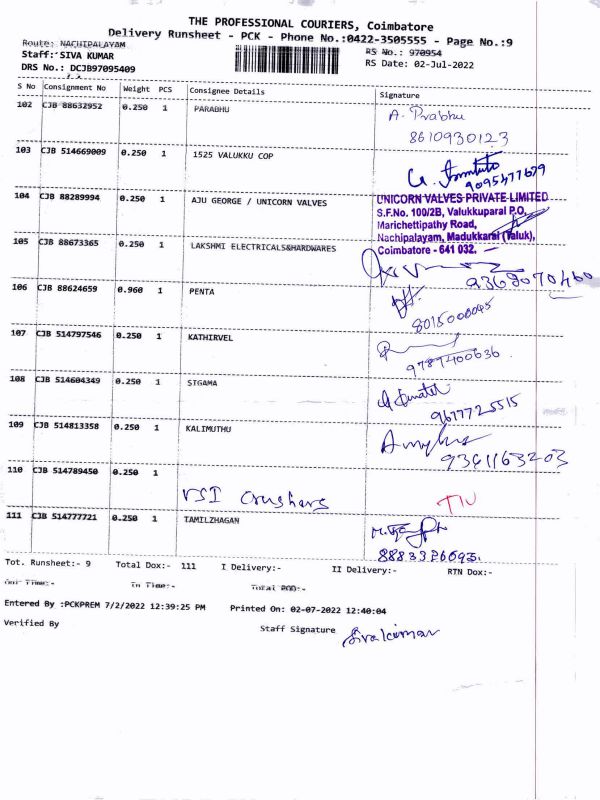 THE PROFESSIONAL COURIERS, Coimbatore
Delivery Runsheet - PCK - Phone No.:0422-3505555 - Page No.:9
Route: NACHIPALAYAM
RS No.: 970954
Staff: SIVA KUMAR
RS Date: 02-Jul-2022
DRS No.: DCJB97095409
S No Consignment No Weight PCS Consignee Details Signature
102 CJB 88632952 0.250 1 PARABHU A. Prabhu
8610930123
103 CJB 514669009 0.250 1 1525 VALUKKU COP
9095477679
104 CJB 88289994 0.250 1 AJU GEORGE / UNICORN VALVES UNICORN VALVES PRIVATE LIMITED
S.F.No. 100/2B, Valukkuparai P.O,
Marichettipathy Road,
Nachipalayam, Madukkarai (Taluk),
Coimbatore - 641 032.
105 CJB 88673365 0.250 1 LAKSHMI ELECTRICALS&HARDWARES
106 CJB 88624659 0.960 1 PENTA
107 CJB 514797546 0.250 1 KATHIRVEL
9787400636
108 CJB 514604349 0.250 1 STGAMA
9677725515
109 CJB 514813358 0.250 1 KALIMUTHU
9361163203
110 CJB 514789450 0.250 1
VSI Crushers
111 CJB 514777721 0.250 1 TAMILZHAGAN
Tot. Runsheet:- 9 Total Dox:- 111 I Delivery:- II Delivery:- RTN Dox:-
Out Time:- In Time:- Total POD:-
Entered By :PCKPREM 7/2/2022 12:39:25 PM Printed On: 02-07-2022 12:40:04
Verified By Staff Signature Sivakumar